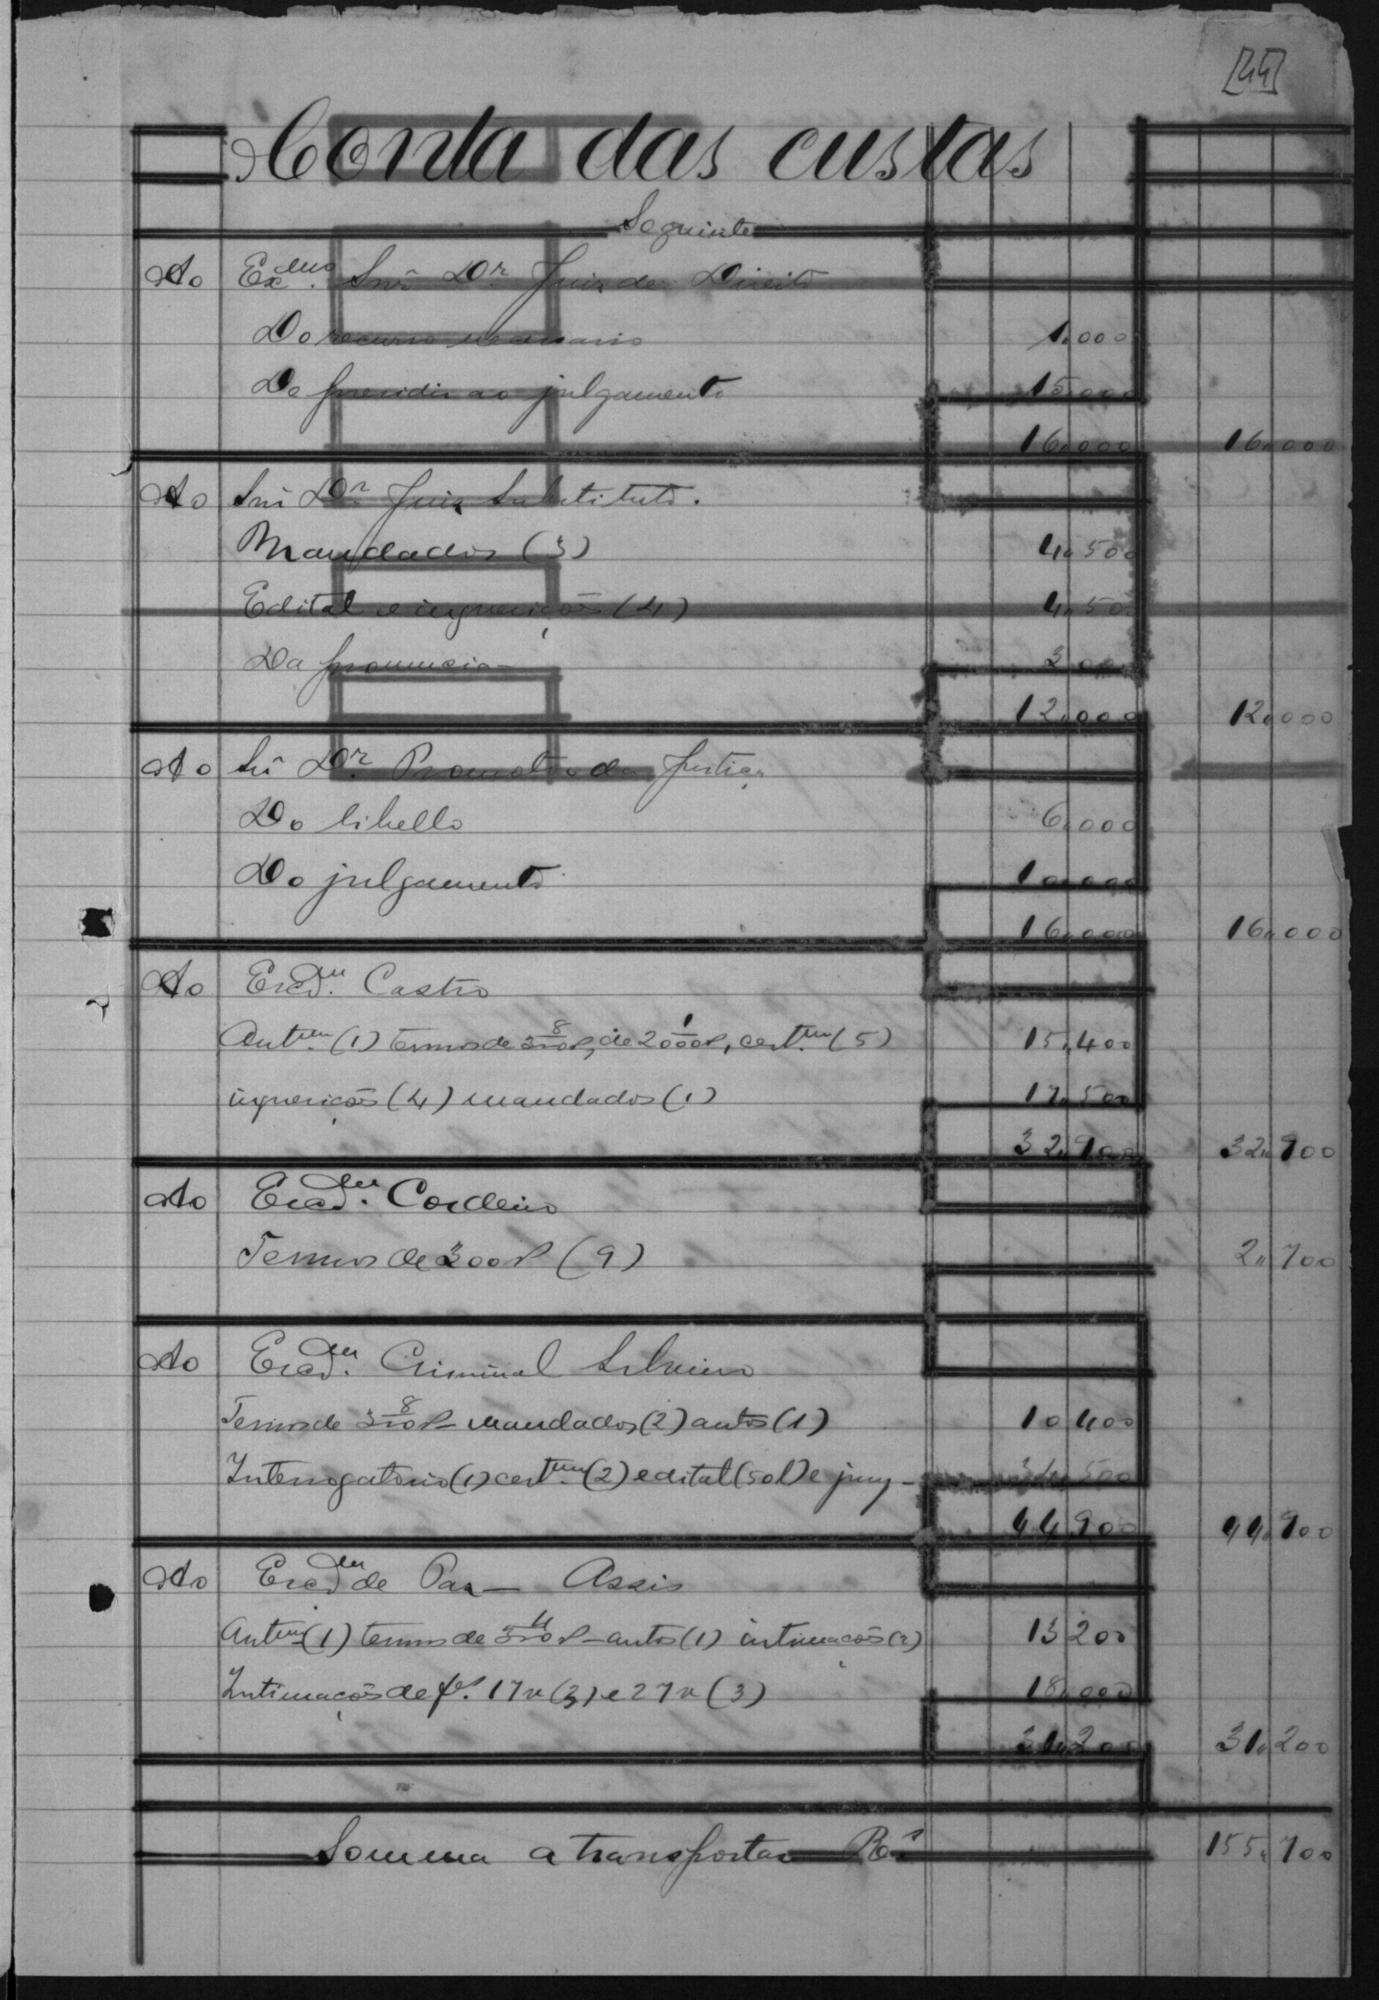 [44]
Conta das custas
Seguinte
Ao Exmo. Snr Dr Juiz de Direito
Do recurso necessario 1.000
De presidir ao julgamento 15.000
16.000 16.000
Ao Snr Dr Juiz Substituto.
Mandados (3) 4.500
Edital e inqueriçõs (4) 4.500
Da pronuncia 3.000
12.000 12.000
Ao Sr Dr. Promotor da Justiça
Do libello 6.000
Do julgamento 10.000
16.000 16.000
Ao Escdm. Castro
Autm. (1) termos de 300 8, de 2000 1, certm (5) 15.400
inquericõs (4) mandados (1) 17.500
32.900 32.900
Ao Escdm. Cordeiro
Termos de 300 (9) 2.700
Ao Escdm. Criminal Silveira
Termos de 300 8 mandados (2) autos (1) 10 400
Interrogatorio (1) certm. (2) edital (sol) e jury - 34.500
44 900 44.900
Ao Escdm de Paz - Assis
Autm (1) termos de 300 4 - autos (1) intimacõs (2) 13 200
Intimacõs de fs. 17v (3) e 27v (3) 18.000
31.200 31.200
Somma a transportar Rs 155.700